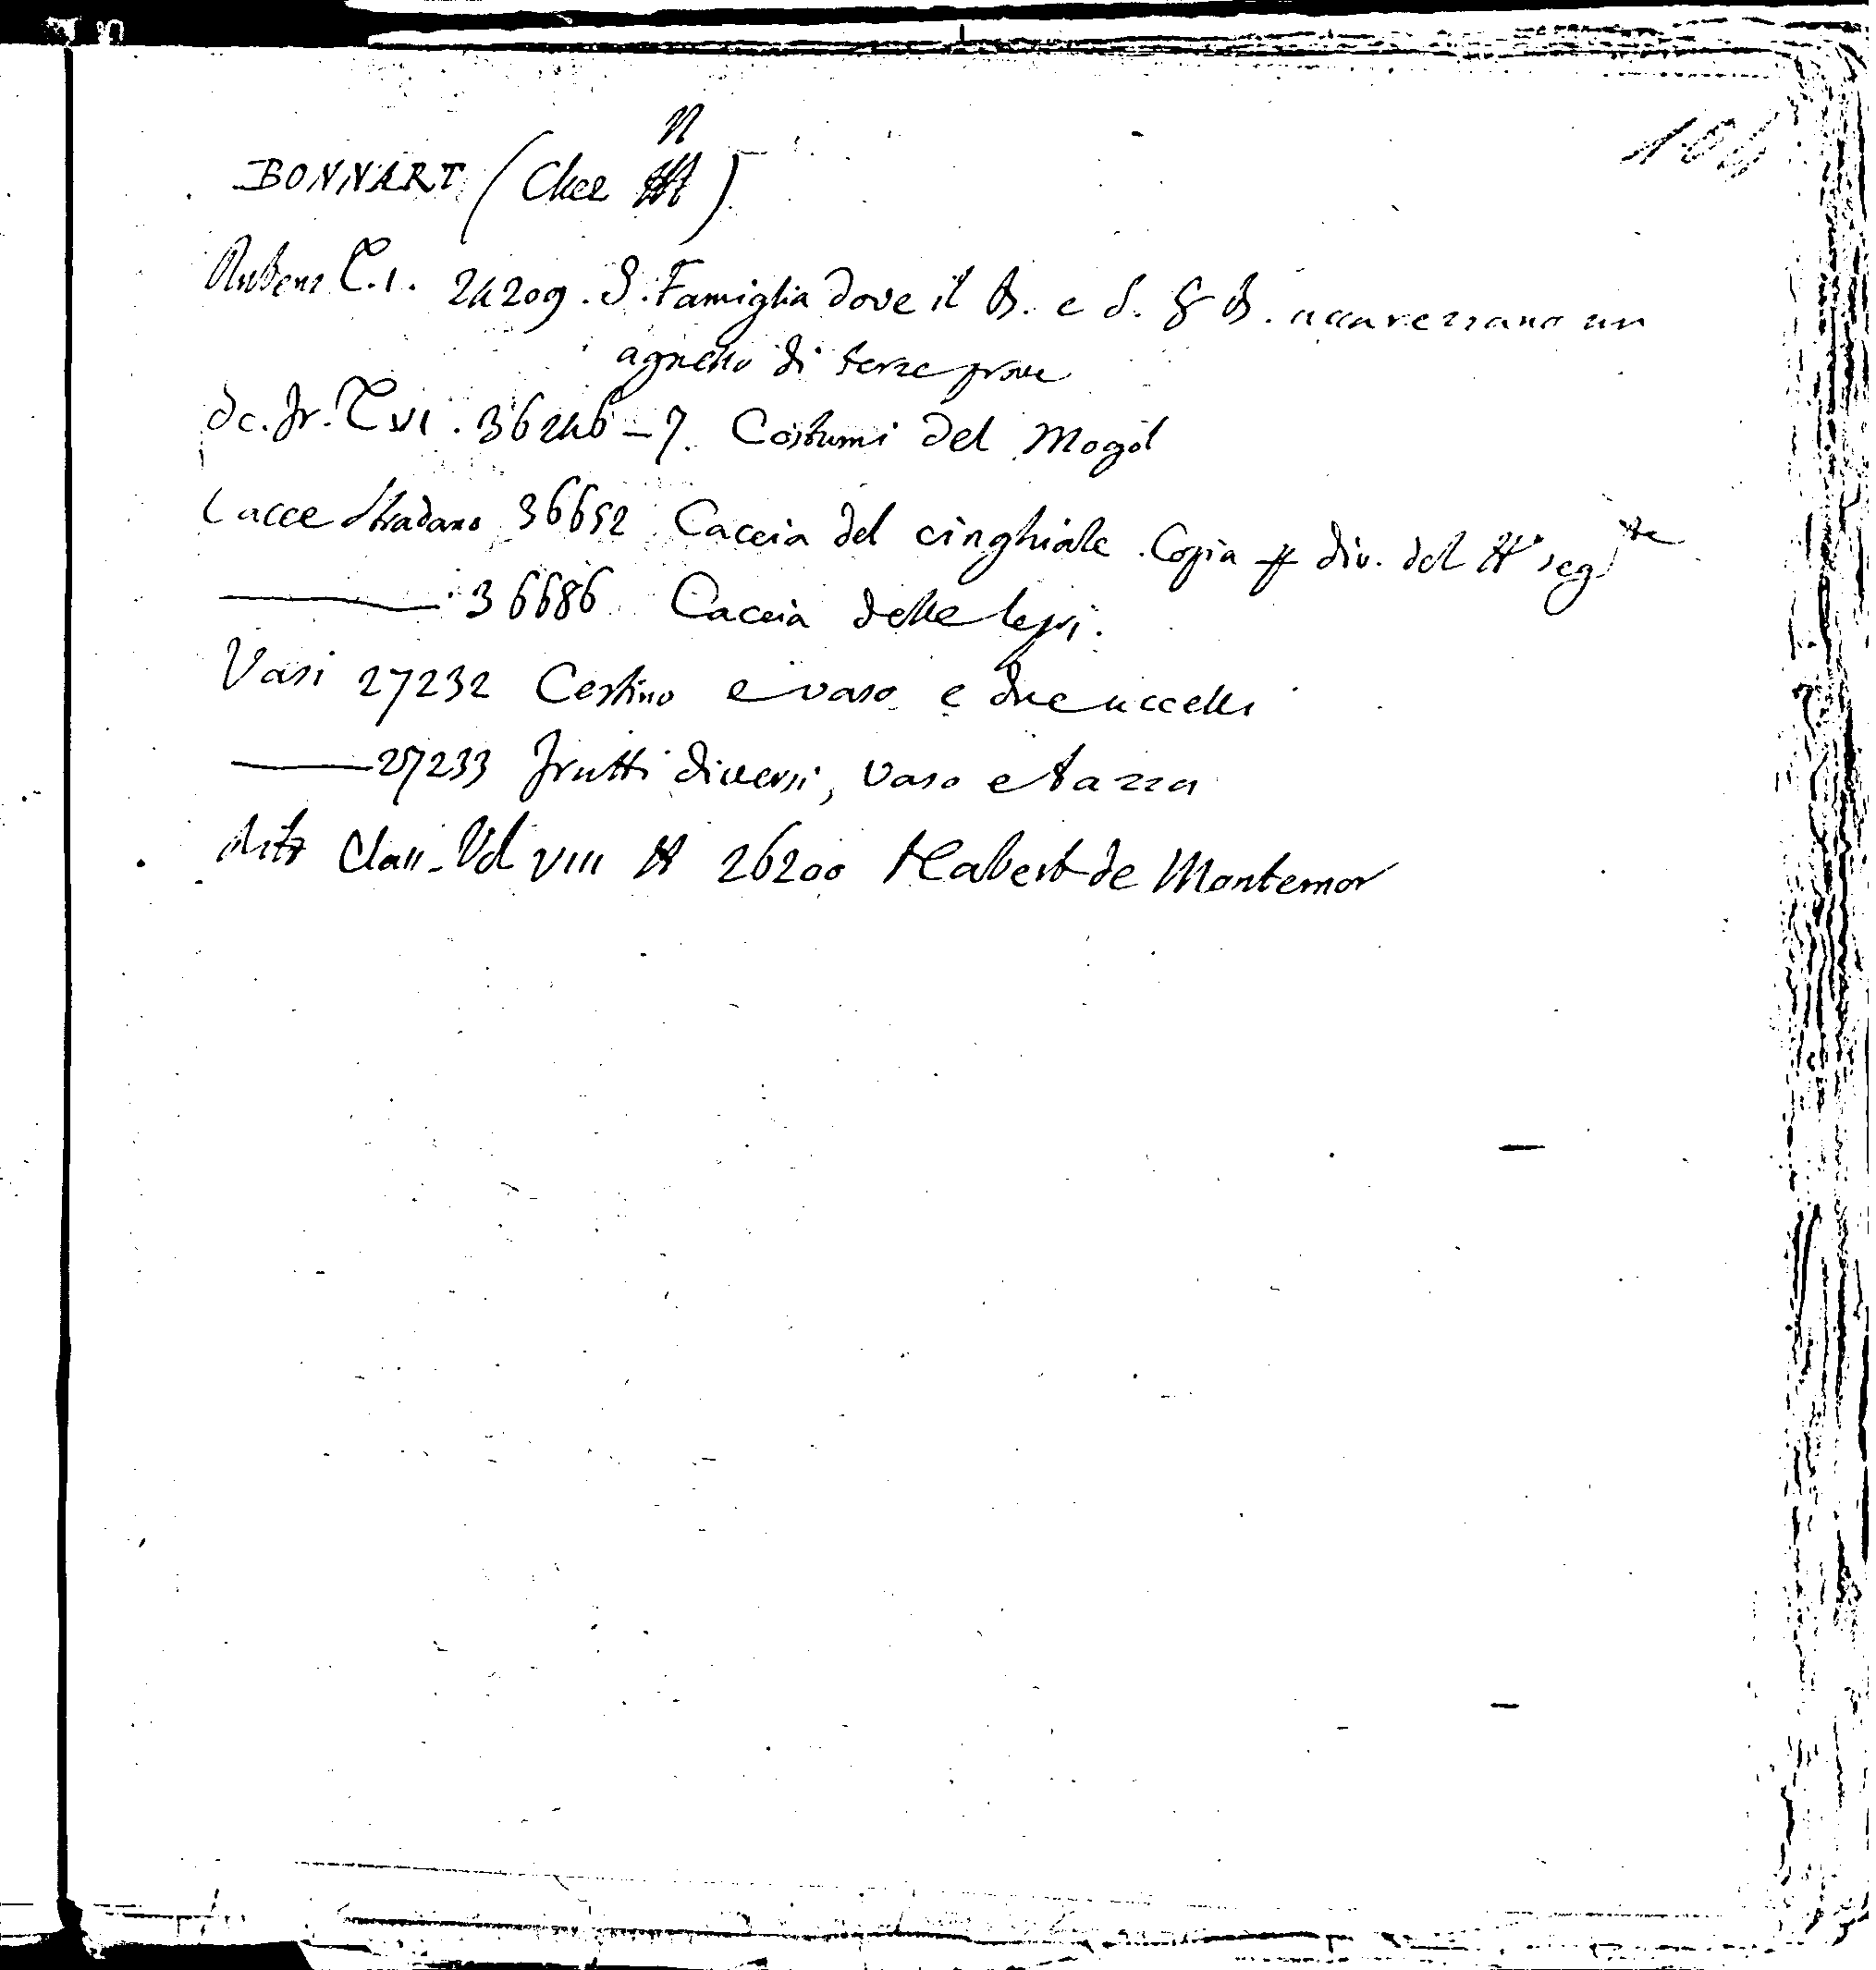 104
BONNART (Chez N)
Rubens T. I. 24209. S. Famiglia dove il B. e S. G B. accarezzano un
agnello di terze prove
Sc. Fr. T. VI. 36246-7. Costumi del Mogol
Cacce Stradano 36652 Caccia del cinghiale. Copia div. del N° seg.te
36686 Caccia delle lepri.
Vasi 27232 Cestino e vaso e due uccelli
27233 Frutti diversi, vaso e tazza
Ritr Class. Vol VIII N 26200 Habert de Montemor